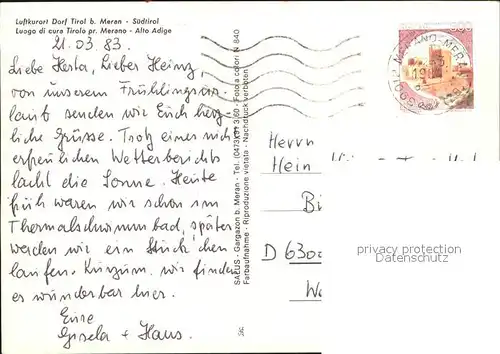 Luftkurort Dorf Tirol b. Meran - Südtirol
Luogo di cura Tirolo pr. Merano - Alto Adige
21.03.83.
Liebe Herta, Lieber Heinz,
von unserem Frühlingsur-
laub senden wir Euch herz-
liche Grüsse. Trotz eines nicht
erfreulichen Wetterberichts
lacht die Sonne. Heute
früh waren wir schon im
Thermalschwimmbad, später
werden wir ein Stückchen
laufen. Kurzum, wir finden
es wunderbar hier.
Eure
Gisela + Haus.
SAELIS - Gargazon b. Meran - Tel. (0473) 91 3 60 - Fotocolori N 840
Farbaufnahme - Riproduzione vietata - Nachdruck verboten
MERANO-MERAN
19
Herrn
Hein
D 6300
privacy protection